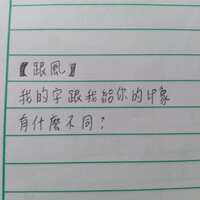 【跟風】
我的字跟我給你的印象
有什麼不同？